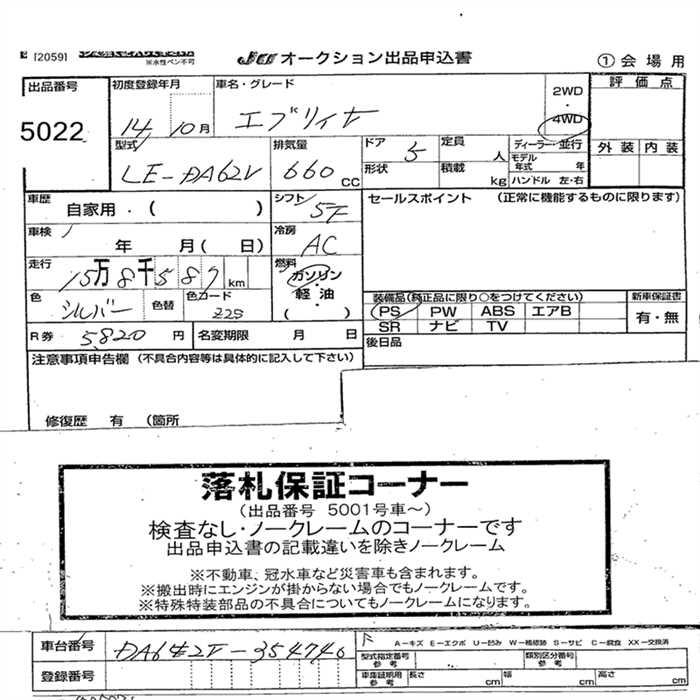 [2059]
※水性ペン不可
JU オークション出品申込書
① 会場用
出品番号
5022
初度登録年月
14 10月
車名・グレード
エブリィバン
2WD
・
4WD
評価点
外装 内装
型式
LE-DA62V
排気量
660 CC
ドア
5
形状
定員
人
積載
kg
ディーラー・並行
モデル年式 年
ハンドル 左・右
車歴
自家用・( )
シフト
5F
セールスポイント (正常に機能するものに限ります)
車検
年 月( 日)
冷房
AC
走行
15万8千587 km
燃料
ガソリン
・
軽油
・
( )
色
シルバー
色替
色コード
Z2S
装備品(純正品に限り○をつけてください)
PS PW ABS エアB
SR ナビ TV
新車保証書
有・無
R券 5,820 円
名変期限 月 日
後日品
注意事項申告欄 (不具合内容等は具体的に記入して下さい)
修復歴 有 (箇所
落札保証コーナー
(出品番号 5001号車~)
検査なし・ノークレームのコーナーです
出品申込書の記載違いを除きノークレーム
※不動車、冠水車など災害車も含まれます。
※搬出時にエンジンが掛からない場合でもノークレームです。
※特殊特装部品の不具合についてもノークレームになります。
車台番号
DA62V-354740
A―キズ E―エクボ U―凹み W―補修跡 S―サビ C―腐食 XX―交換済
型式指定番号
参考
類別区分番号
参考
登録番号
車庫証明用
参考
長さ cm
幅 cm
高さ cm